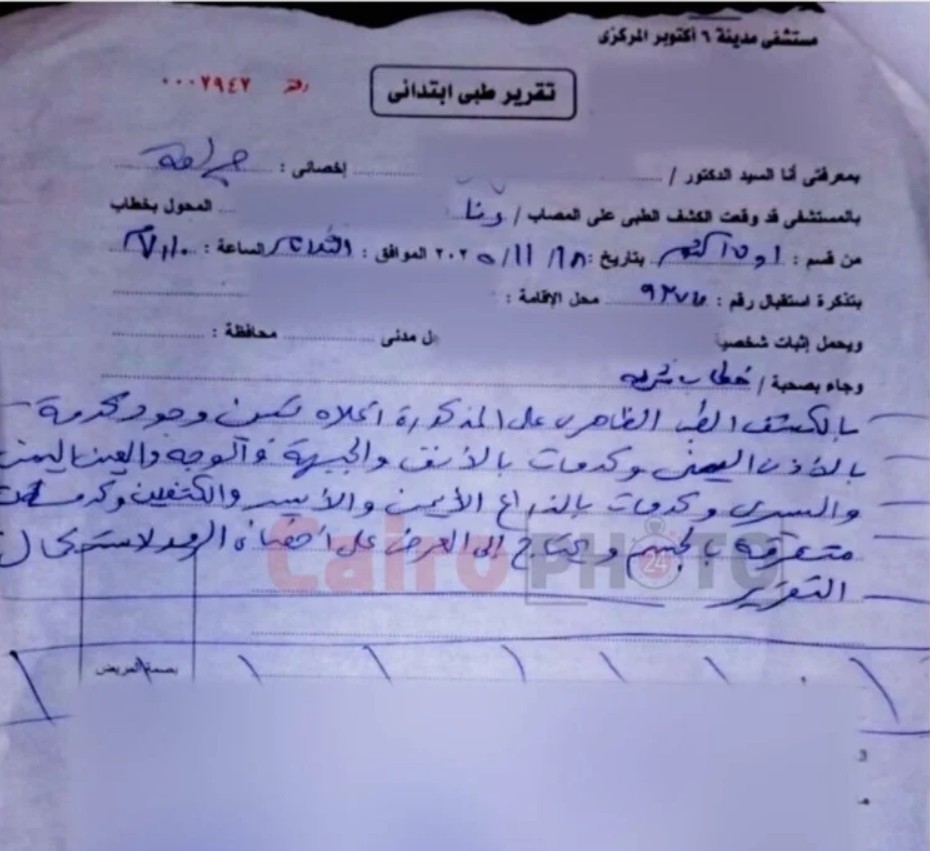 مستشفى مدينة ٦ أكتوبر المركزى
رقم ٠٠٠٢٩٤٢
تقرير طبى ابتدائى
بمعرفتى أنا السيد الدكتور / إخصائى : جراحة
بالمستشفى قد وقعت الكشف الطبى على المصاب / المحول بخطاب
من قسم : أول أكتوبر بتاريخ : ١٨ / ١١ / ٢٠٢٥ الموافق : الثلاثاء الساعة :
بتذكرة استقبال رقم : محل الإقامة :
ويحمل إثبات شخصية ل مدنى محافظة :
وجاء بصحبة / خطاب شرطه
بالكشف الطبى الظاهرى على المذكورة أعلاه تبين وجود
بالأذن اليمنى وكدمات بالأنف والجبهة والوجه والعين اليمنى
واليسرى وكدمات بالذراع الأيمن والأيسر والكتفين وكدمات
متفرقة بالجسم وتحتاج إلى العرض على أخصائى الرمد لاستكمال
التقرير
Cairo PHOTO
24
بصمة المريض